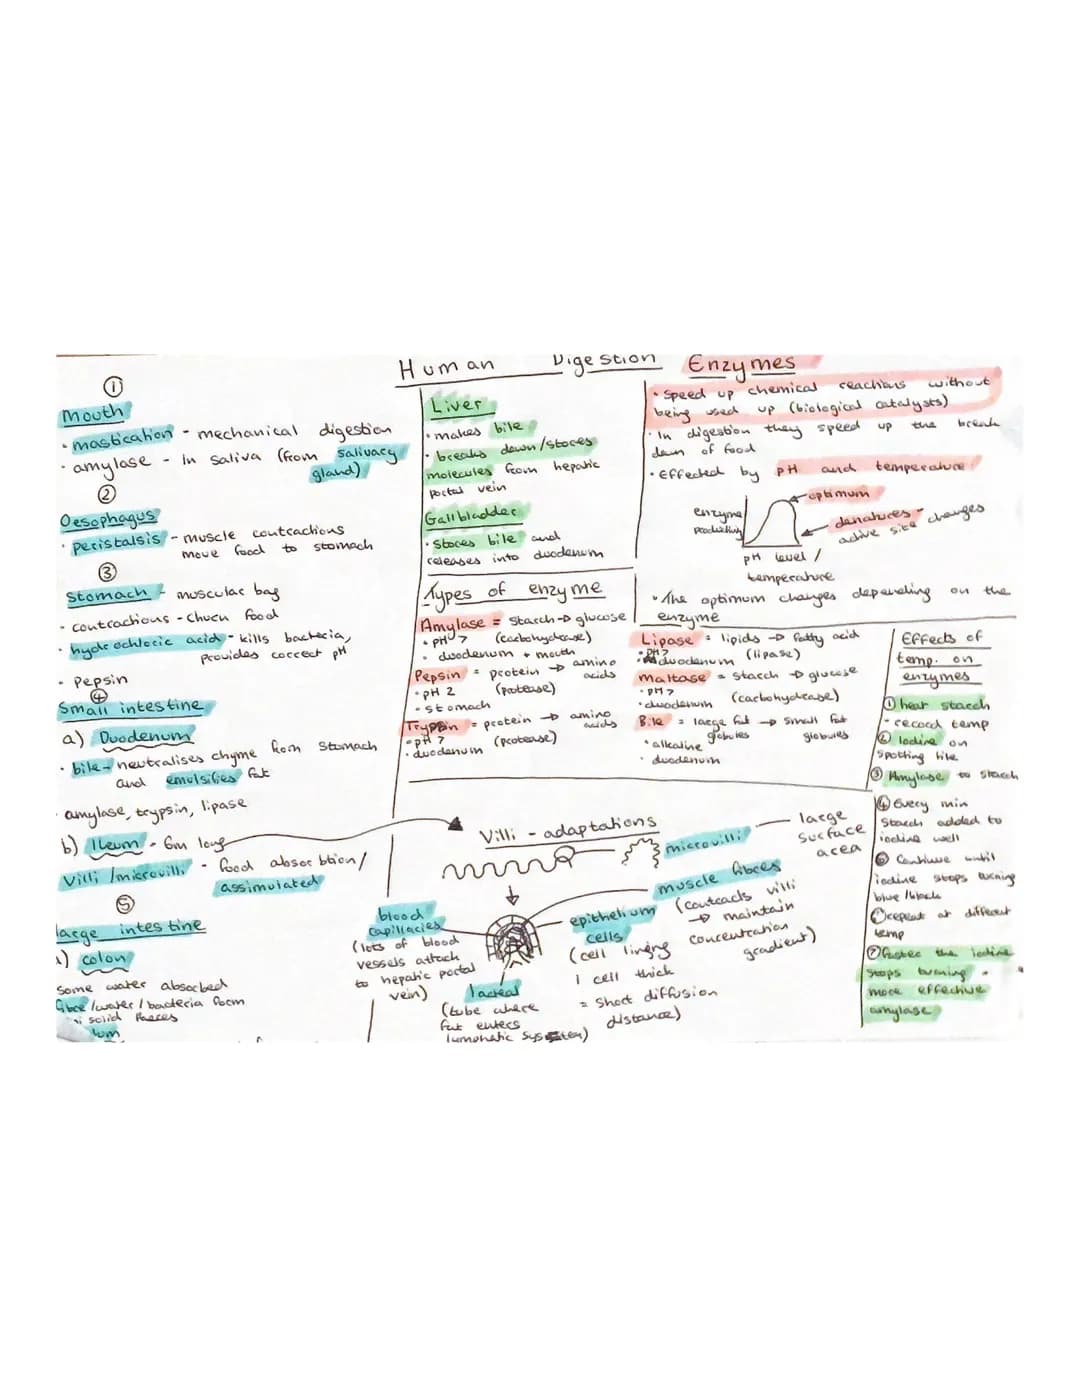 Human Digestion Enzymes
①
Mouth
· mastication - mechanical digestion
· amylase - in saliva (from salivary
gland)
②
Oesophagus
· peristalsis - muscle contractions
move food to stomach
③
Stomach - muscular bag
· contractions - churn food
· hydrochloric acid - kills bacteria,
provides correct pH
· Pepsin
④
Small intestine
a) Duodenum
· bile - neutralises chyme from stomach
and emulsifies fat
· amylase, trypsin, lipase
b) Ileum - 6m long
Villi /microvilli - food absorbtion/
assimulated
⑤
large intestine
) colon
some water absorbed
fibre /water / bacteria form
solid faeces
Liver
· makes bile
· breaks down /stores
molecules from hepatic
portal vein
Gallbladder
· stores bile and
releases into duodenum
Types of enzyme
Amylase = starch → glucose
· pH 7 (carbohydrase)
· duodenum + mouth
Pepsin = protein → amino
acids
· pH 2 (protease)
· stomach
Trypsin = protein → amino
acids
· pH 7 (protease)
· duodenum
· Speed up chemical reactions without
being used up (biological catalysts)
· In digestion they speed up the break
down of food
· Effected by pH and temperature
optimum
enzyme
productivity
denatures -
active site changes
pH level /
temperature
· The optimum changes depending on the
enzyme
Lipase = lipids → fatty acid
· pH 7 (lipase)
· duodenum
Maltase = starch → glucose
· pH 7 (carbohydrase)
· duodenum
Bile = large fat → small fat
globules globules
· alkaline
· duodenum
Effects of
temp. on
enzymes
① heat starch
- record temp
② Iodine on
spotting tile
③ Amylase to starch
④ Every min
starch added to
iodine well
⑤ Continue until
iodine stops turning
blue /black
⑥ repeat at different
temp
⑦ faster the iodine
stops turning =
more effective
amylase
Villi - adaptations
microvilli - large
surface
area
muscle fibres
(contracts villi
→ maintain
concentration
gradient)
blood
capillaries
(lots of blood
vessels attach
to hepatic portal
vein)
lacteal
(tube where
fat enters
lymphatic system)
epithelium
cells
(cell lining
1 cell thick
= short diffusion
distance)